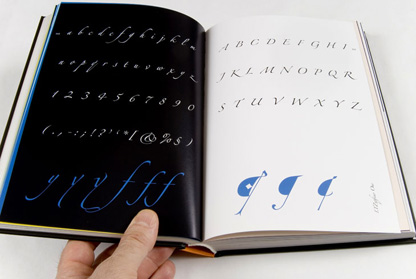 a b c d e f g h i j k l m
n o p q r s t u v w x y z
1 2 3 4 5 6 7 8 9 0
( . , - : ; ! ? ' ' " * [ @ % § )
y y y f f f
A B C D E F G H I -
J K L M N O P Q R
S T U V W X Y Z
¶ g ¢